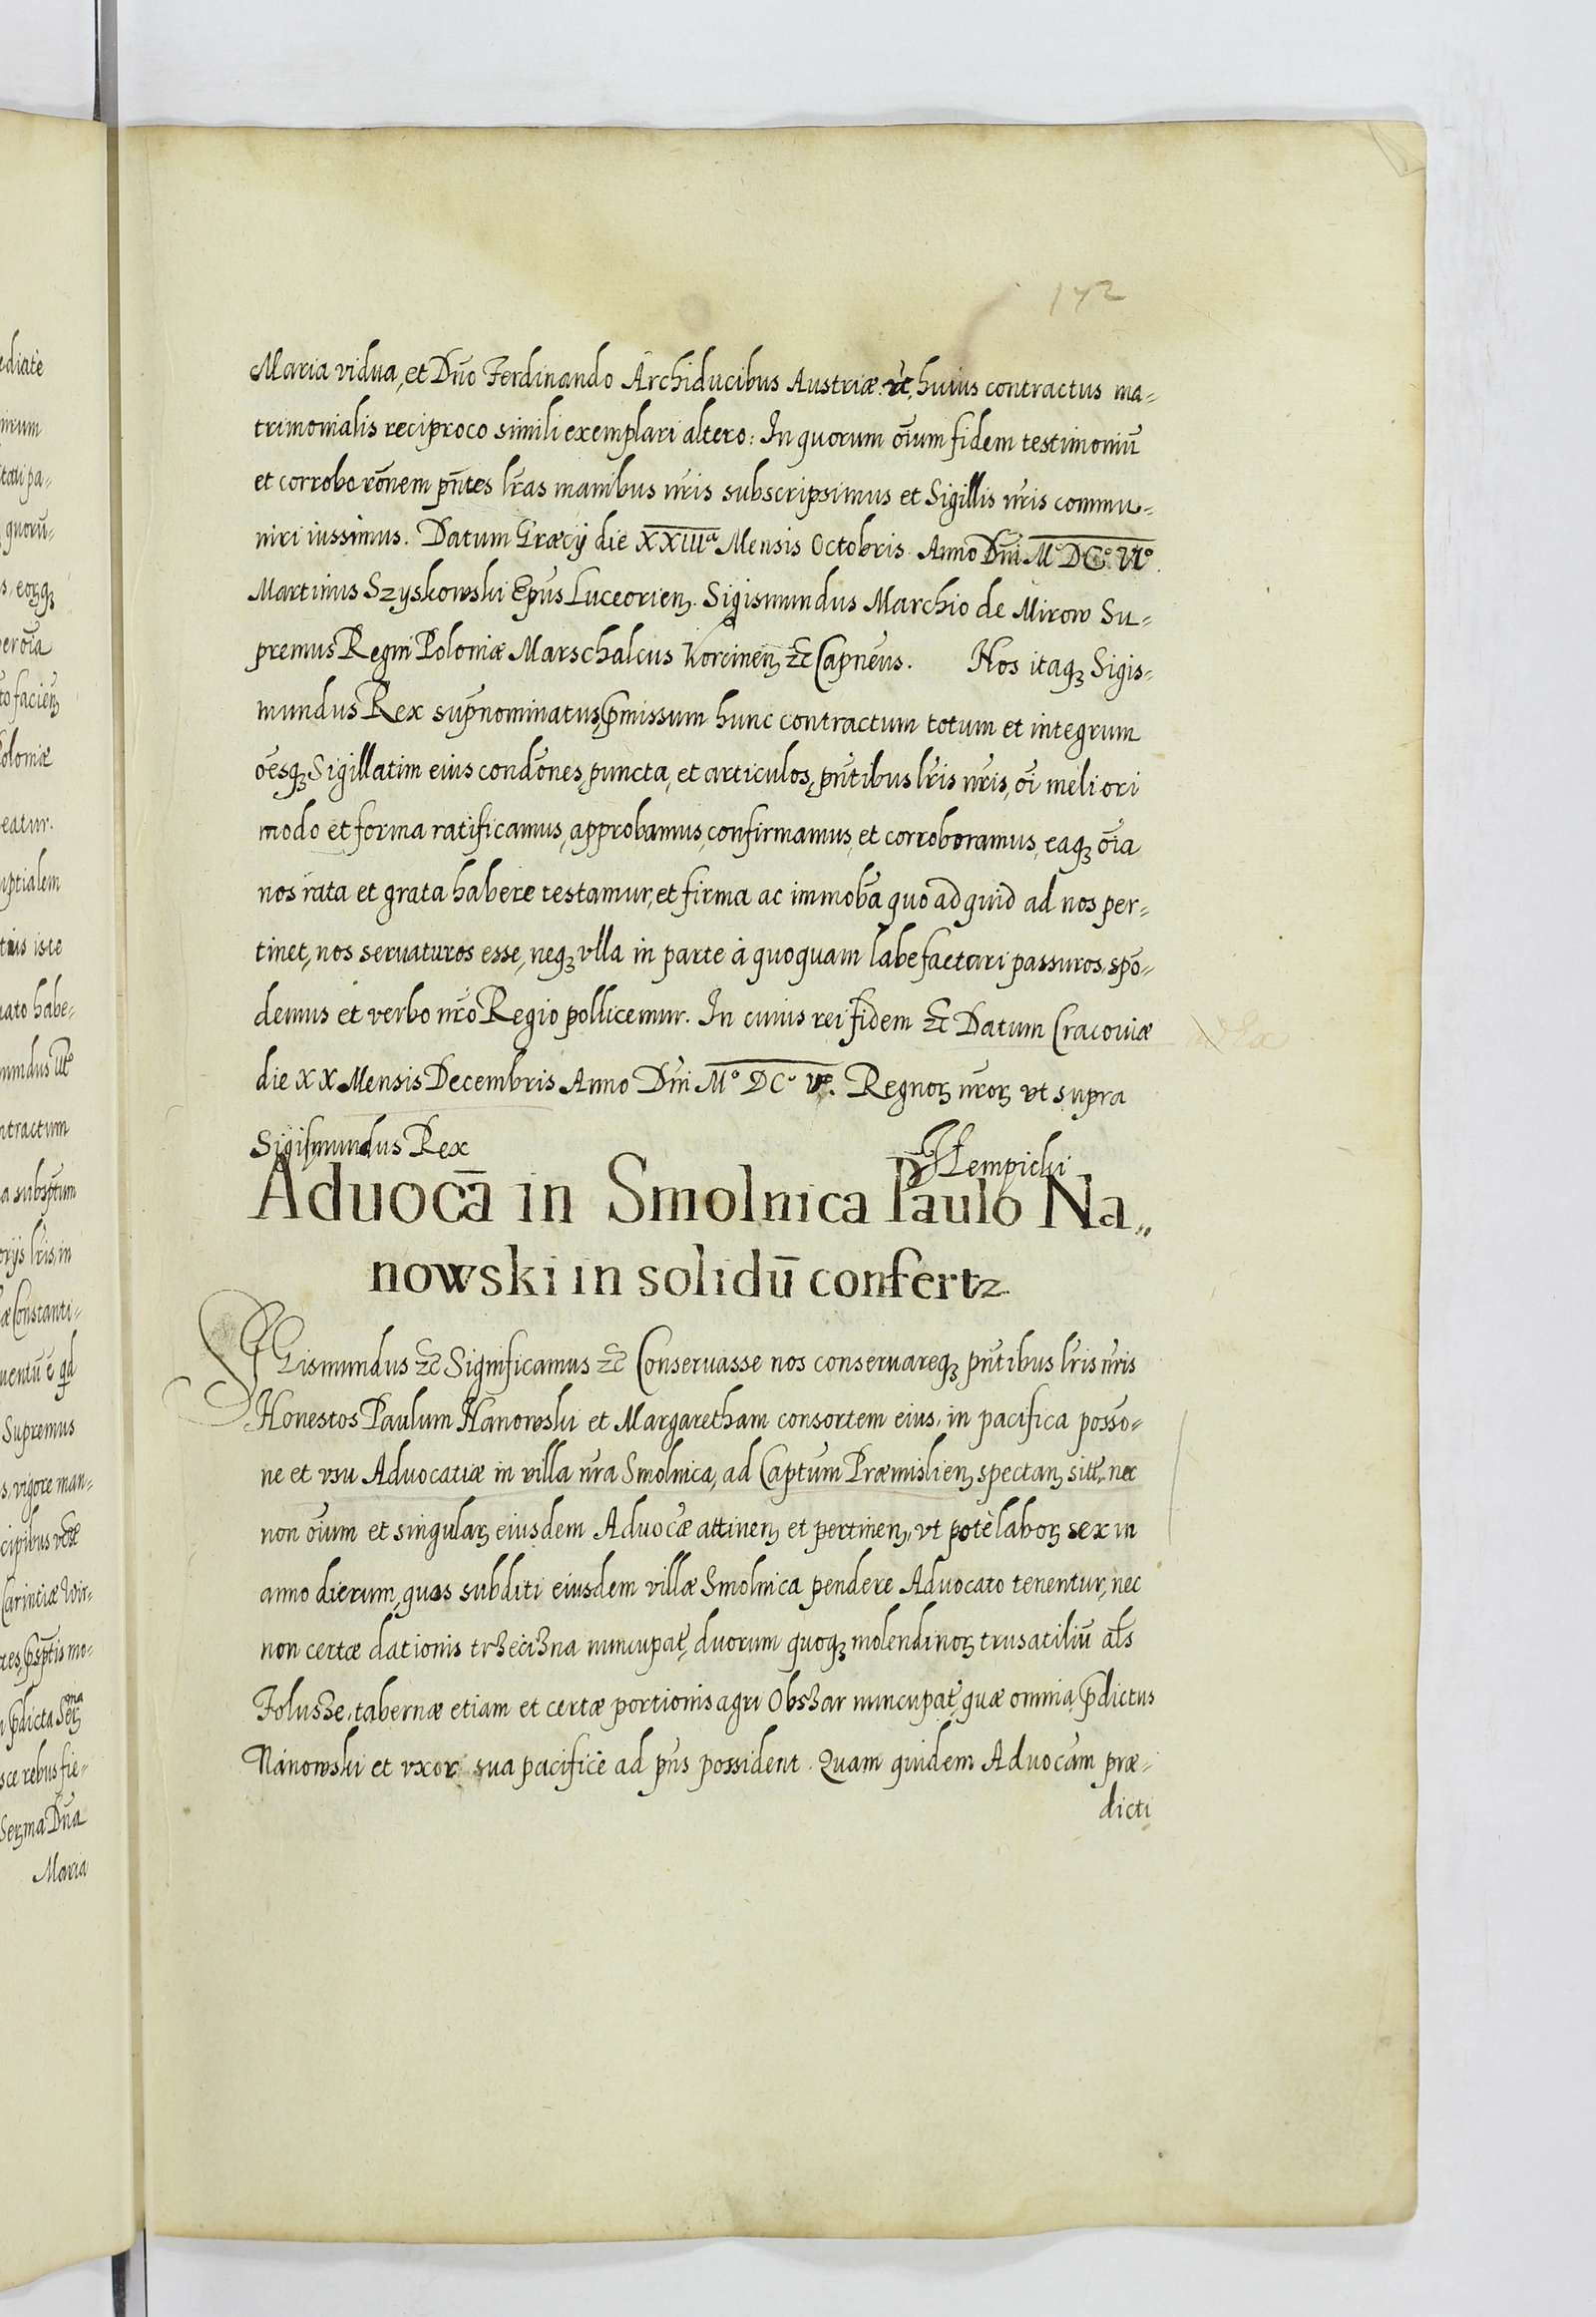 142
Maria vidua, et Dn̄o Ferdinando Archiducibus Austriæ, huius contractus ma-
trimonialis reciproco simili exemplari altero: In quorum oīum fidem testimoniū
et corroborōnem pn̄tes lr̄as manibus nr̄is subscripsimus et Sigillis nr̄is commu-
niri iussimus. Datum Græcij die XXIIIᵃ Mensis Octobris Anno Dn̄i Mº DCº Vtº.
Martinus Szyskowski Ep̄us Luceorien̨. Sigismundus Marchio de Mirow Su-
premus Regni Poloniæ Marschalcus Korcinen̨ ꝛc Capneūs. Nos itaqꝫ Sigis-
mundus Rex supr̄nominatus, p̄missum hunc contractum totum et integrum
ōesqꝫ Sigillatim eius condōnes, puncta, et articulos, pn̄tibus lr̄is nr̄is, oī meliori
modo et forma ratificamus, approbamus, confirmamus, et corroboramus, eaqꝫ oīa
nos rata et grata habere testamur, et firma ac immobāa quo ad quid ad nos per-
tinet, nos seruaturos esse, neqꝫ vlla in parte à quoquam labefactari passuros, spo-
demus et verbo nr̄o Regio pollicemur. In cuius rei fidem ꝛc Datum Cracouiæ
die XX Mensis Decembris Anno Dn̄i Mº DCº Vº. Regnoꝝ nr̄oꝝ vt supra
Sigismundus Rex Hempicki
Aduocā in Smolnica Paulo Na„
nowski in solidū confertꝛ
SIGismundus ꝛc Significamus ꝛc Conseruasse nos conseruareqꝫ pn̄tibus lr̄is nr̄is
Honestos Paulum Nanowski et Margaretham consortem eius, in pacifica posso-
ne et vsu Aduocatiæ in villa nr̄a Smolnica, ad Captum̄ Præmislien̨ spectan̨ sitt̄, nec
non oīum et singulaꝝ eiusdem Aduocǣ attinen̨ et pertinen̨, vt potè laboꝝ sex in
anno dierum, quos subditi eiusdem villæ Smolnica pendere Aduocato tenentur, nec
non certæ dationis trzecizna nuncupat̄, duorum quoqꝫ molendinoꝝ trusatiliū al̄s
Folusze, tabernæ etiam et certæ portionis agri Obszar nuncupat̄, quæ omnia p̄dictus
Nanowski et vxor sua pacificè ad pn̄s possident. Quam quidem Aduocām præ-
dicti